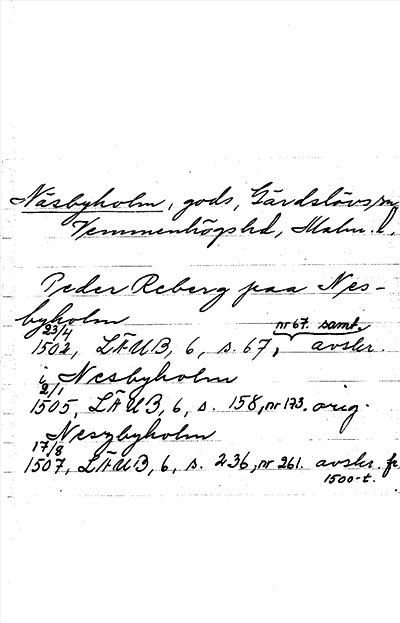 Näsbyholm, gods, Gärdslövs sn,
Vemmenhögs hd, Malm. l.
Peder Reberg paa Nes-
byholm
23/4 1502, LÄUB, 6, s. 67, nr 67. samt. avskr.
i Nesbyholm
2/1 1505, LÄUB, 6, s. 158, nr 173. orig.
Neszbyholm
17/8 1507, LÄUB, 6, s. 236, nr 261. avskr. fr.
1500-t.